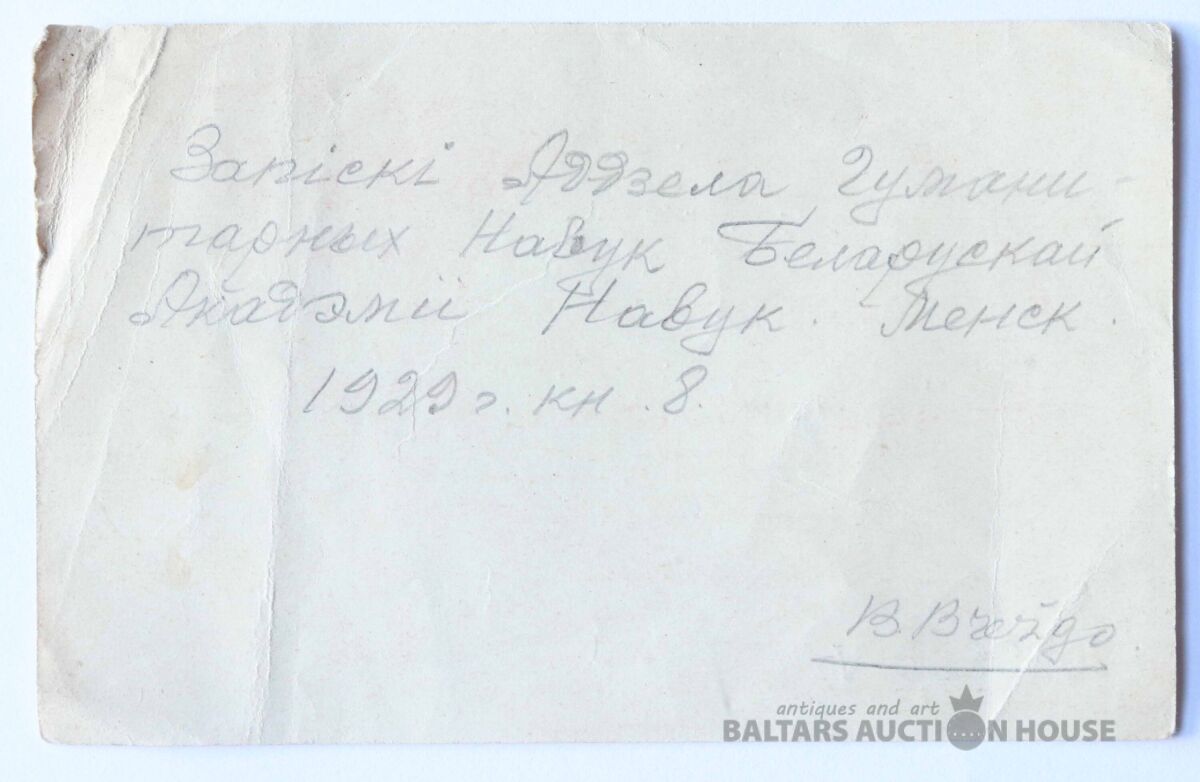 Запіскі Аддзела Гумани-
тарных Навук Беларускай
Акадэміі Навук. Менск.
1929 г. кн. 8.
В.
antiques and art
BALTARS AUCTION HOUSE